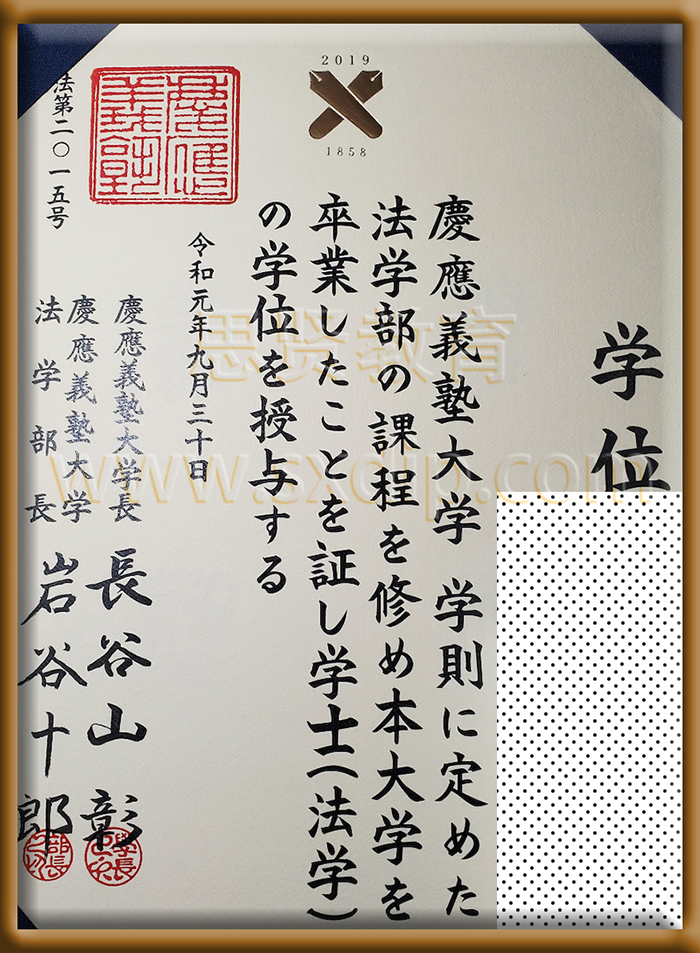 学位
慶應義塾大学 学則に定めた
法学部の課程を修め本大学を
卒業したことを証し学士(法学)
の学位を授与する
令和元年九月三十日
慶應義塾大学長 長谷山 彰
慶應義塾大学
法学部長 岩谷十郎
法第二〇一五号
2019
1858
思贤教育
www.sxdlp.com